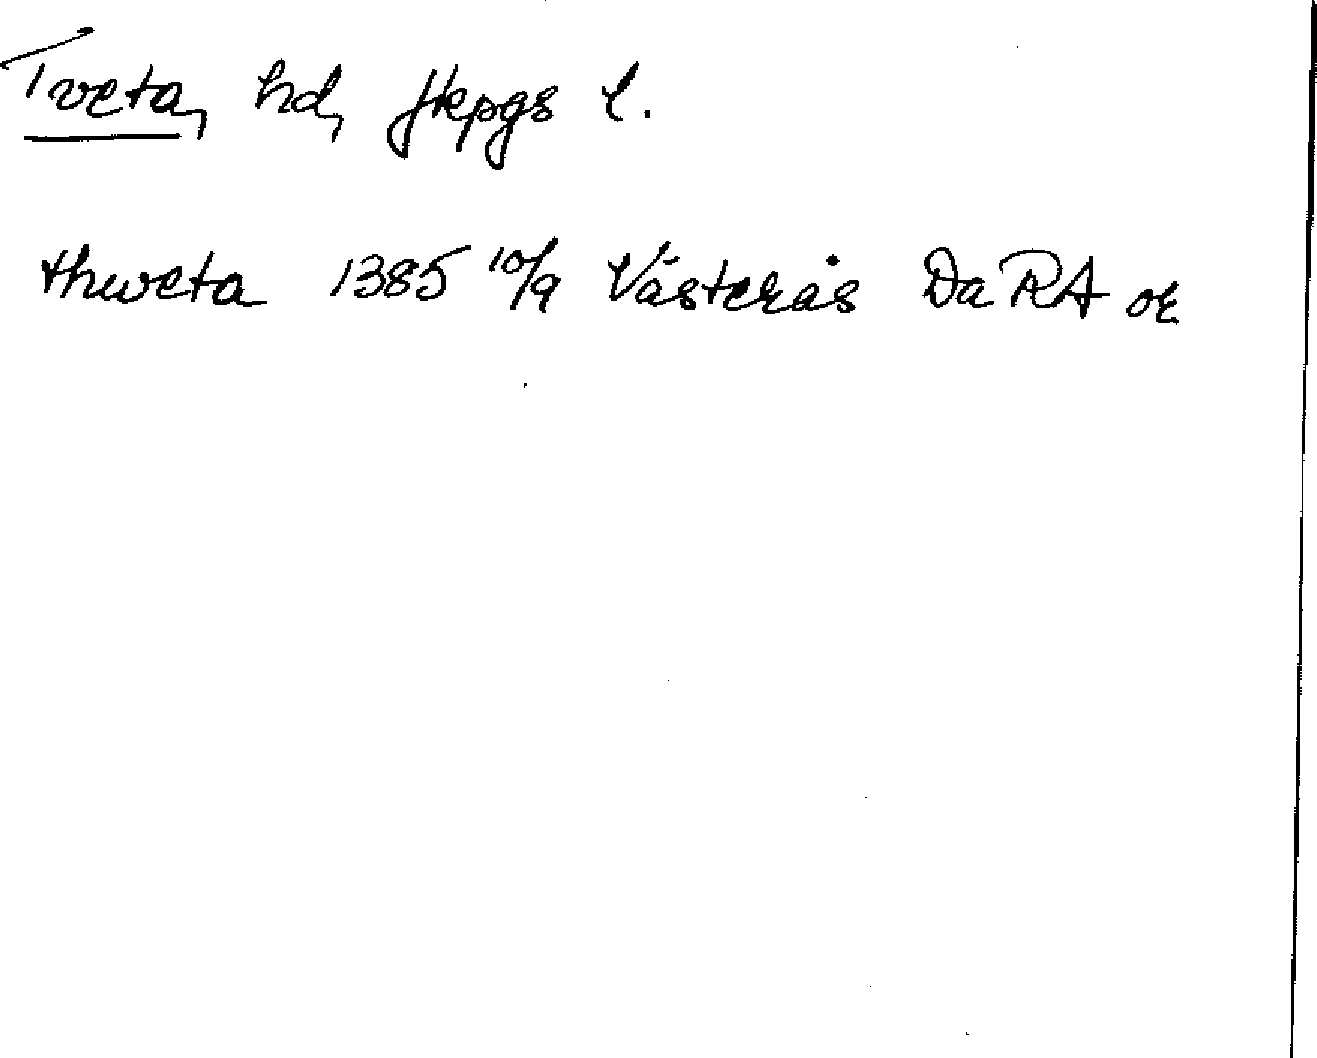 Tveta, hd, Jkpgs l.
thweta 1385 10/9 Västerås DaRA or